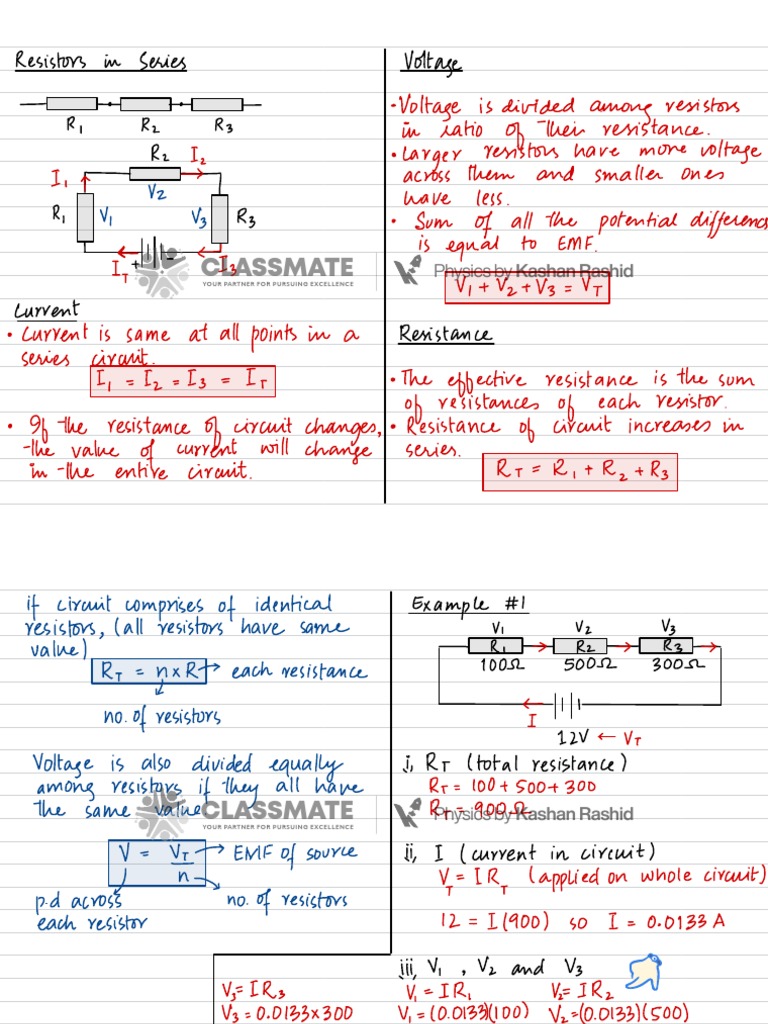 Resistors in Series
R1 R2 R3
R2 I2
I1 V2
R1 V1 V3 R3
IT + - I3
CLASSMATE
YOUR PARTNER FOR PURSUING EXCELLENCE
Current
• Current is same at all points in a
series circuit.
I1 = I2 = I3 = IT
• If the resistance of circuit changes,
the value of current will change
in the entire circuit.
Voltage
• Voltage is divided among resistors
in ratio of their resistance.
• Larger resistors have more voltage
across them and smaller ones
have less.
• Sum of all the potential differenc
is equal to EMF.
Physics by Kashan Rashid
V1 + V2 + V3 = VT
Resistance
• The effective resistance is the sum
of resistances of each resistor.
• Resistance of circuit increases in
series.
RT = R1 + R2 + R3
if circuit comprises of identical
resistors, (all resistors have same
value)
RT = n×R → each resistance
no. of resistors
Voltage is also divided equally
among resistors if they all have
the same value
CLASSMATE
YOUR PARTNER FOR PURSUING EXCELLENCE
V = VT/n → EMF of source
p.d across no. of resistors
each resistor
Example #1
V1 V2 V3
R1 R2 R3
100Ω 500Ω 300Ω
I
12V ← VT
i, RT (total resistance)
RT = 100 + 500 + 300
RT = 900Ω
Physics by Kashan Rashid
ii, I (current in circuit)
VT = IRT (applied on whole circuit)
12 = I(900) so I = 0.0133 A
iii, V1 , V2 and V3
V3 = IR3 V1 = IR1 V2 = IR2
V3 = 0.0133×300 V1 = (0.0133)(100) V2 = (0.0133)(500)